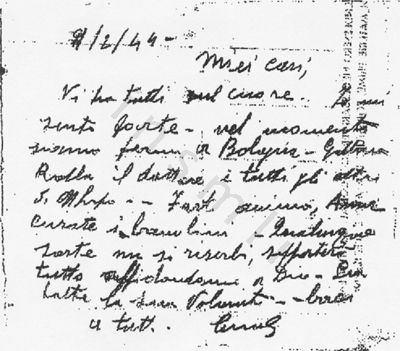 9/2/44 -
Miei cari,
Vi ho tutti nel cuore. Io mi
sento forte - nel momento
siamo fermi a Bologna -
Rolla il dottore e tutti gli altri
5. - Fate animo,
curate i bambini -
sorte mi si riserbi, sopporterò
tutto affidandomi a Dio -
fatta la sua Volontà - - baci
a tutti.